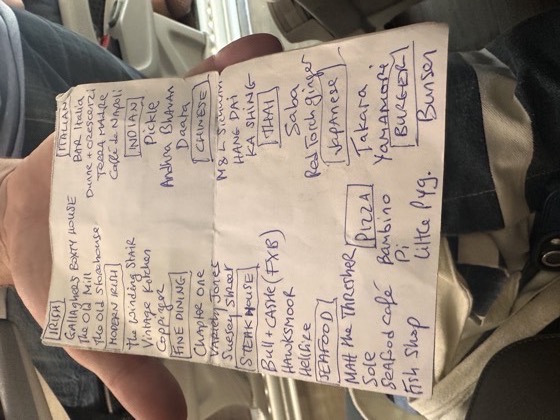 IRISH
GALLAGHERS BOXTY HOUSE
The Old Mill
The Old Storehouse
MODERN IRISH
The Winding Stair
Vintage Kitchen
Coppinger
FINE DINING
Chapter One
Variety Jones
Suesey Street
STEAK HOUSE
Bull + CASTLE (FXB)
HAWKSMOOR
Hellfire
SEAFOOD
MATT the THRESHER
Sole
Seafood café
Fish Shop
ITALIAN
BAR Italia
Dunne + Crescenzi
TERRA MADRE
Caffe de Napoli
INDIAN
Pickle
Andhra BHAVAN
Daata
CHINESE
M & L
HANG DAI
KA SHING
THAI
Saba
Red Torch ginger
Japanese
Takara
YAMAMORI
BURGER
Bunsen
PIZZA
Bambino
Pi
Little Pyg.